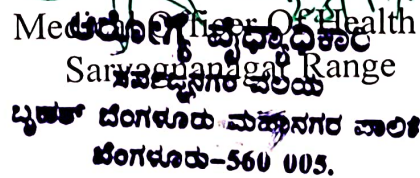 Medical Officer Of Health
ಆರೋಗ್ಯ ವೈದ್ಯಾಧಿಕಾರಿ
Sarvagnanagar Range
ಸರ್ವಜ್ಞನಗರ ವಲಯ
ಬೃಹತ್ ಬೆಂಗಳೂರು ಮಹಾನಗರ ಪಾಲಿಕೆ
ಬೆಂಗಳೂರು-560 005.